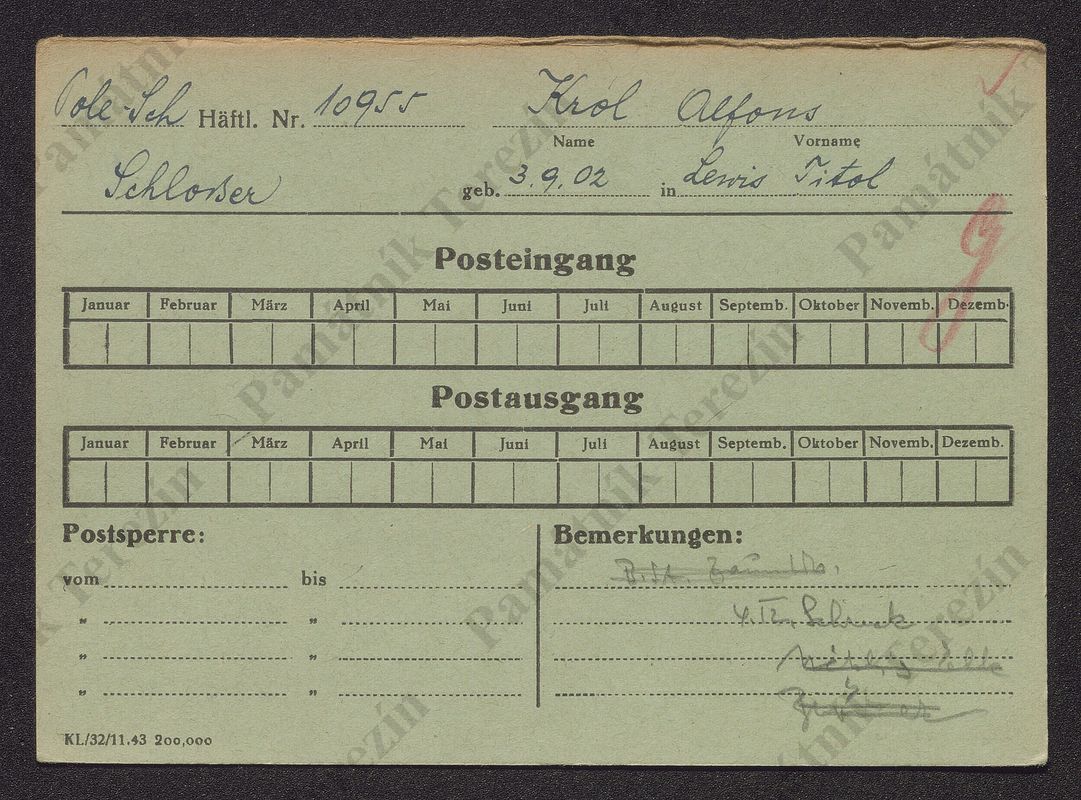 Pole-Sch Häftl. Nr. 10955 Król Alfons
Name Vorname
Schlosser geb. 3.9.02 in Lewis Titol
Posteingang
Januar Februar März April Mai Juni Juli August Septemb. Oktober Novemb. Dezemb.
Postausgang
Januar Februar März April Mai Juni Juli August Septemb. Oktober Novemb. Dezemb.
Postsperre:
vom bis
„ „
„ „
„ „
Bemerkungen:
KL/32/11.43 200,000
Památník Terezín